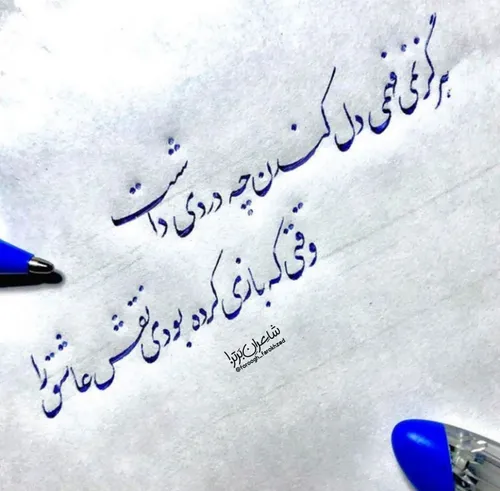 هرگز نمی فهمی دل کندن چه دردی داشت
وقتی که بازی کرده بودی نقش عاشق را
شاعران برتر!
@foroogh_farokhzad